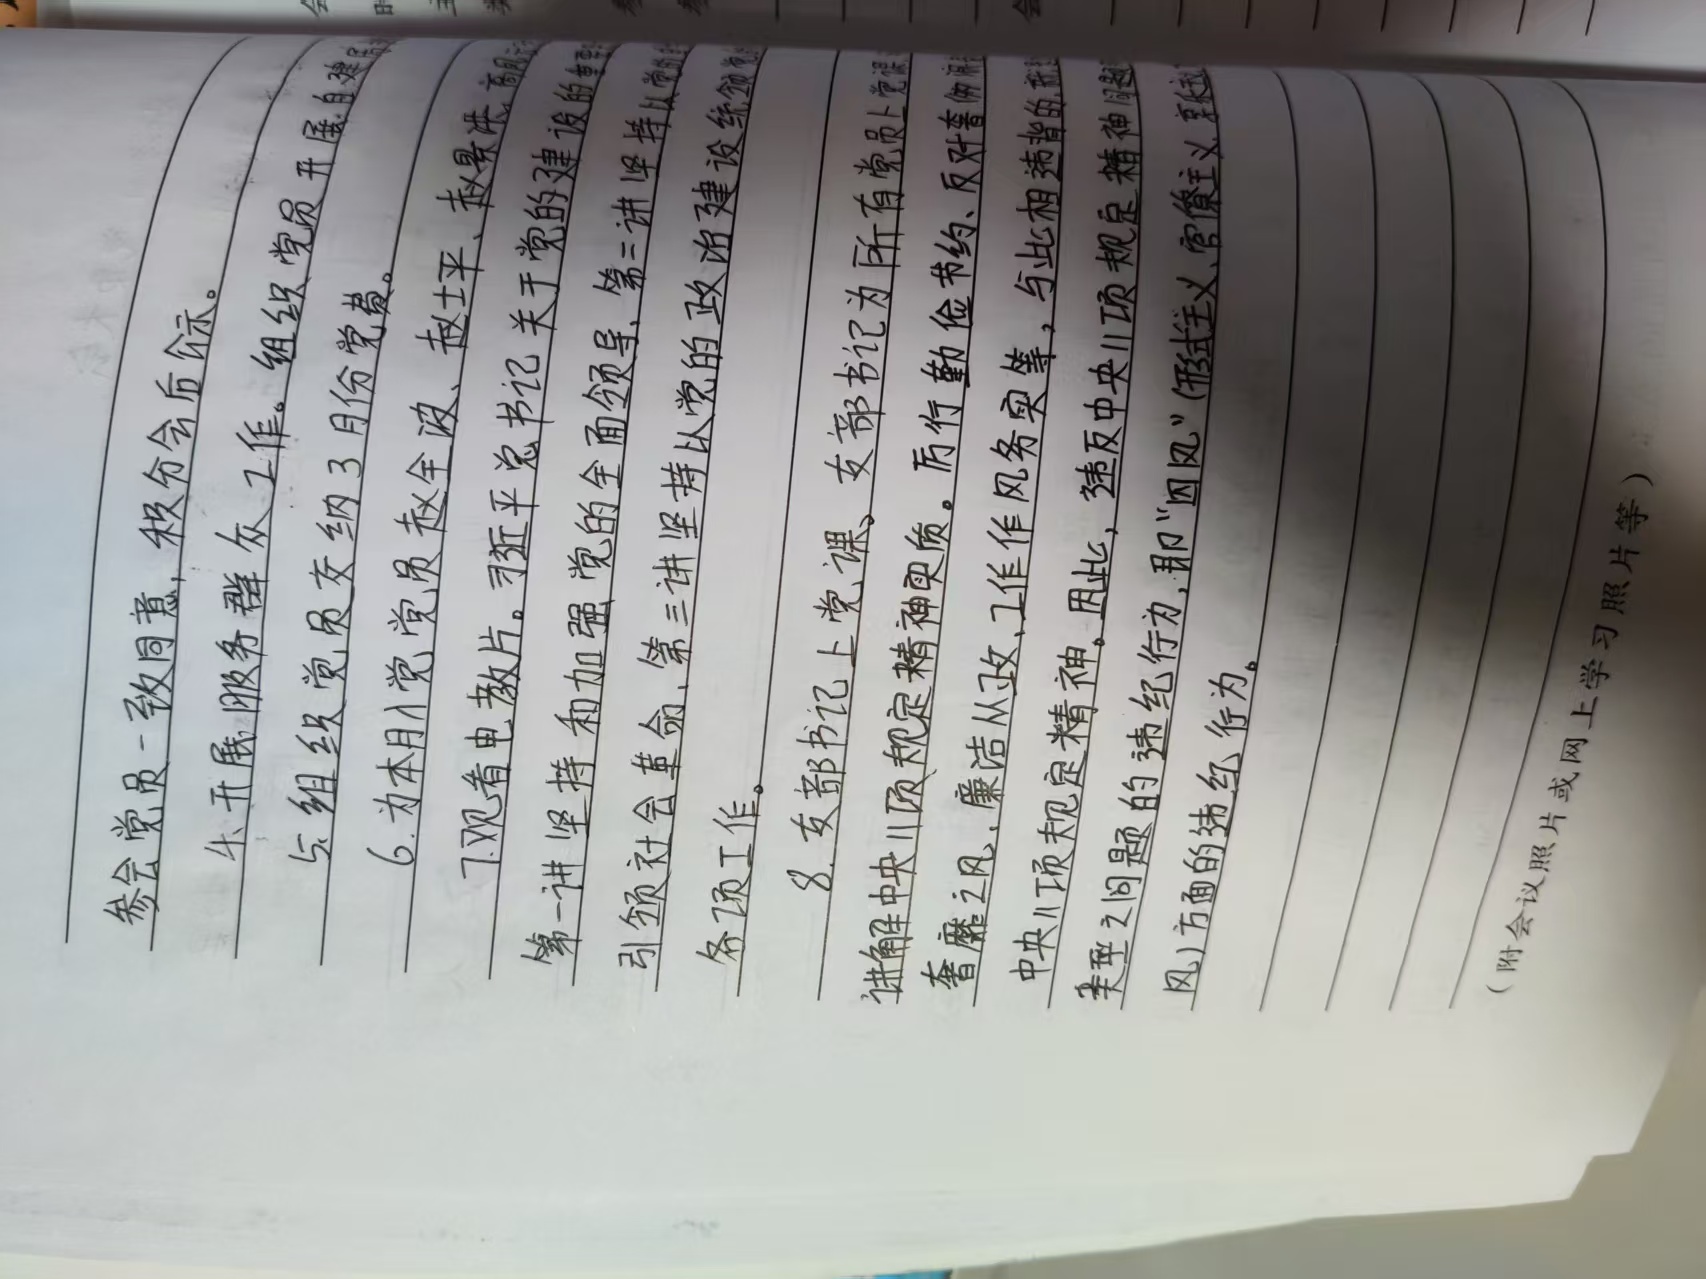 参会党员一致同意，积分会后公示。
4、开展服务群众工作。组织党员开展自
5、组织党员交纳3月份党费。
6、为本月入党党员赵全波、赵士平、赵景洪
7、观看电教片。习近平总书记关于党的建设的重要
第一讲坚持和加强党的全面领导、第二讲坚持以党的
引领社会革命、第三讲坚持以党的政治建设统领党
各项工作。
8、支部书记上党课。支部书记为所有党员上党课
讲解中央八项规定精神实质。厉行勤俭节约、反对奢侈
奢靡之风、廉洁从政、工作作风务实等，与此相违背的
中央八项规定精神。因此，违反中央八项规定精神问题
类型之问题的违纪行为，即“四风”（形式主义、官僚主义、享
风）方面的违纪行为。
（附会议照片或网上学习照片等）